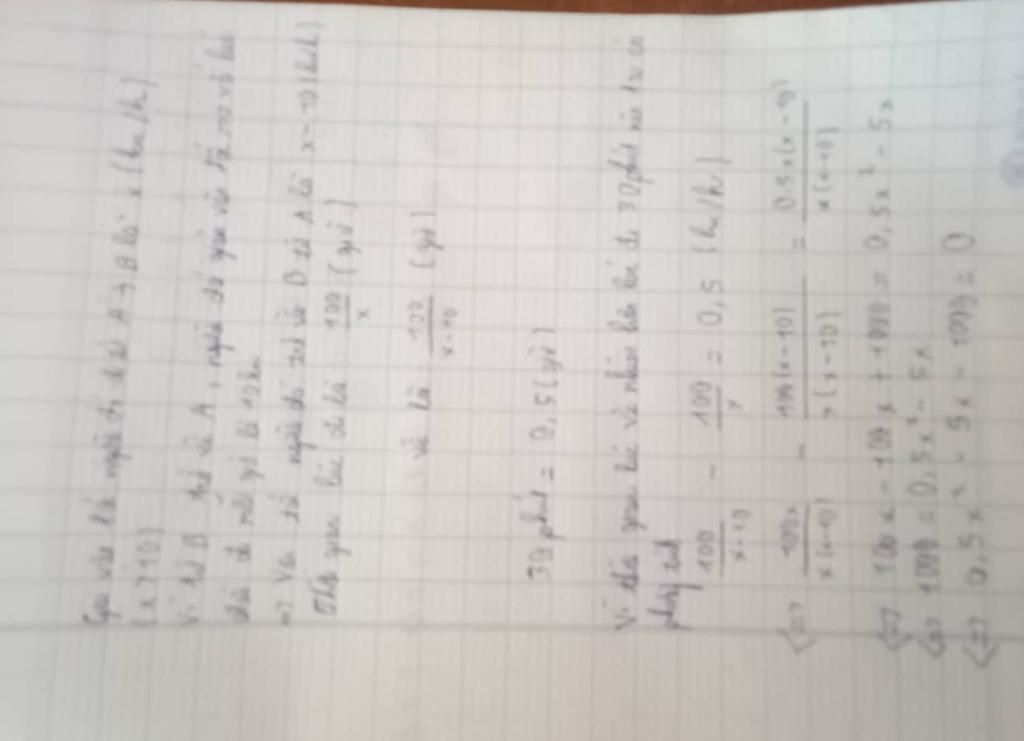 Gọi vận tốc người đi từ A → B là x (km/h)
(x > 10)
Vì từ B trở về A, người đó giảm vận tốc so với lúc
đi mỗi giờ là 10 km
=> Vận tốc người đó từ B về A là x - 10 (km/h)
Thời gian lúc đi là 100/x (giờ)
về là 100/x-10 (giờ)
30 phút = 0,5 (giờ)
Vì thời gian lúc về nhiều hơn lúc đi 30 phút nên ta có
phương trình
100/x-10 - 100/x = 0,5 (km/h)
<=> 100x/x(x-10) - 100(x-10)/x(x-10) = 0,5x(x-10)/x(x-10)
<=> 100x - 100x + 1000 = 0,5x² - 5x
<=> 1000 = 0,5x² - 5x
<=> 0,5x² - 5x - 1000 = 0